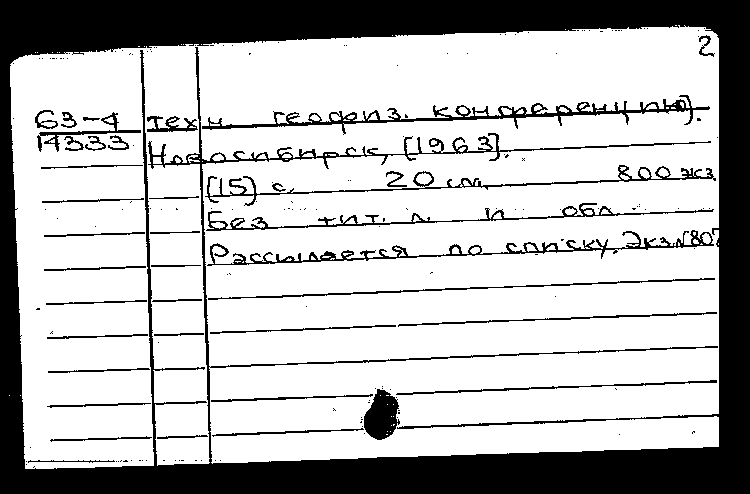 2
63-4 техн. геофиз. конференцию].
14333 Новосибирск, [1963].
[15] с. 20 см. 800 экз
Без тит. л. и обл.
Рассылается по списку. Экз. №807